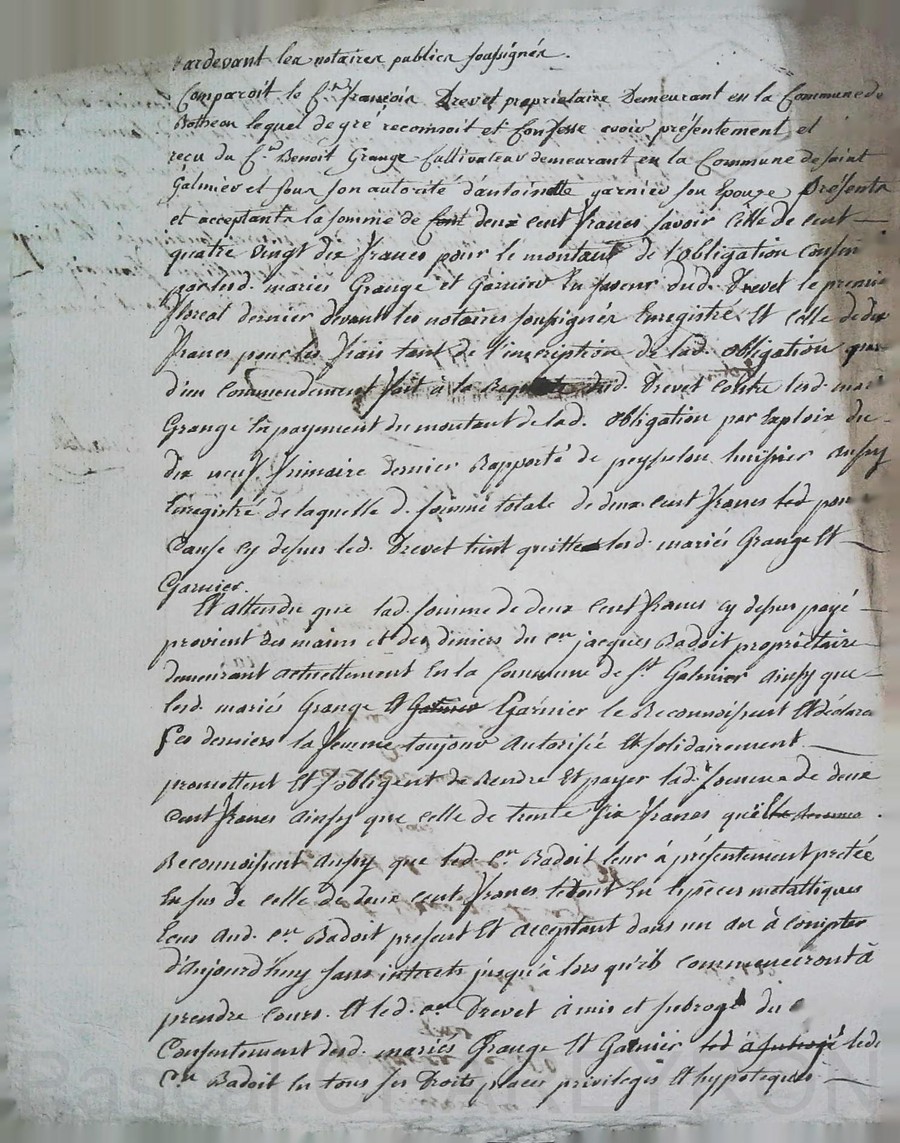 Pardevant les notaires publics soussignés.
Comparoit le Cen françois Drevet propriétaire Demeurant en la Commune de
Botheon lequel de gré reconnoit et Confesse avoir présentement et
reçu du Cen Benoît Grange Cultivateur demeurant en la Commune de saint
Galmier et sous son autorité d'antoinette garnier son Epouze présents
et acceptants la somme de cent deux cent francs savoir Celle de cent
quatre vingt dix francs pour le montant de l'obligation Consen
par lesd. mariés Grange et Garnier En faveur dud. Drevet le premier
floreal dernier devant les notaires soussignés Enregistré Et Celle de dix
francs pour les frais tant de l'inscription de lad. obligation que
d'un Commendement fait à la Requete dud. Drevet Contre lesd. mariés
Grange En payement du montant de lad. Obligation par Exploix du
dix neuf frimaire dernier Rapporté de peysselon huissier aussy
Enregistré de laquelle d. somme totale de deux cent francs led par
Cause cy dessus led. Drevet tient quitte lesd. mariés Grange Et
Garnier.
Et attendu que lad. somme de deux Cent francs cy dessus payé
provient des mains et des diniers du cen jacques Badoit propriétaire
demeurant actuellement En la Commune de St. Galmier ainsy que
lesd. mariés Grange Et Garnier Garnier le Reconnoissent Et déclare
Ces derniers la femme toujour Autorisée Et solidairement
promettent Et s'obligent de Rendre Et payer lad. somme de deux
Cent francs ainsy que celle de trente six francs
Reconnoissent aussy que led. Cen Badoit leur à présentement pretée
En sus de celle de deux cent francs letout En Espèces metalliques
Ecus Aud. cen Badoit present Et acceptant dans un an à Compter
d'Aujourd'huy sans interets jusqu'à lors qu'ils commenceront à
prendre Cours. Et led. cen Drevet à mis et subrogé du
Consentement desd. mariés Grange Et Garnier led à subrogé led
Cen Badoit En tous ses Droits places privileges Et hypoteques